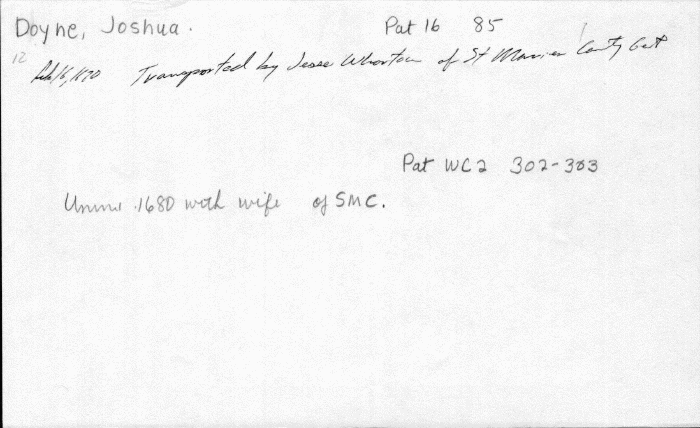 Doyne, Joshua. Pat 16 85
12 Feb 16, 1670 Transported by Jesse Wharton of St Maries County Gent
Pat WC2 302-303
Imm. 1680 with wife of SMC.